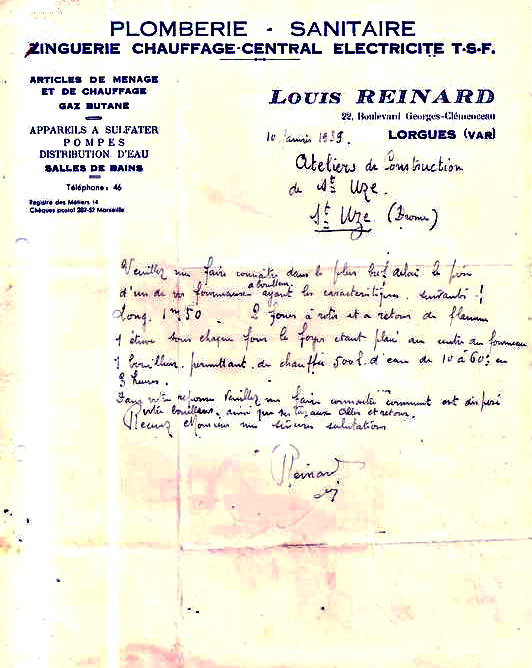 PLOMBERIE - SANITAIRE
ZINGUERIE CHAUFFAGE-CENTRAL ELECTRICITE T-S-F.
ARTICLES DE MENAGE
ET DE CHAUFFAGE
GAZ BUTANE
APPAREILS A SULFATER
POMPES
DISTRIBUTION D'EAU
SALLES DE BAINS
Téléphone: 46
Registre des Métiers 14
Chèques postal 282-52 Marseille
LOUIS REINARD
22, Boulevard Georges-Clémenceau
LORGUES (VAR)
10 Janvier 1939.
Ateliers de Construction
de St Uze.
St Uze (Drome)
Veuillez me faire connaître dans le plus bref délai le prix
a bouilleur
d'un de vos fourneaux ayant les caractéristiques suivantes!
Long. 1m50. 2 fours à rotir et a retour de flamme
1 étuve sous chaque four le foyer etant placé au centre du fourneau
1 bouilleur permettant de chauffer 500 l. d'eau de 10 à 60° en
3 heures.
Dans votre reponse Veuillez me faire connaitre comment est disposé
votre bouilleur, ainsi que ses tuyaux aller et retour.
Recevez Monsieur mes sincères salutations
Reinard